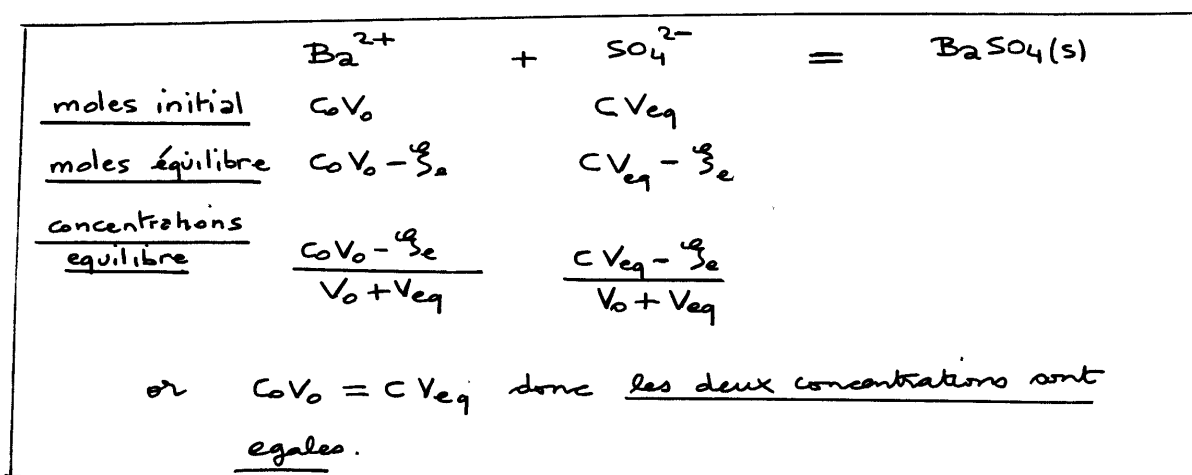 Ba²⁺ + SO₄²⁻ = BaSO₄(s)
moles initial C₀V₀ CVeq
moles équilibre C₀V₀ - ξe CVeq - ξe
concentrations
equilibre (C₀V₀ - ξe)/(V₀ + Veq) (CVeq - ξe)/(V₀ + Veq)
or C₀V₀ = CVeq donc les deux concentrations sont
egales.